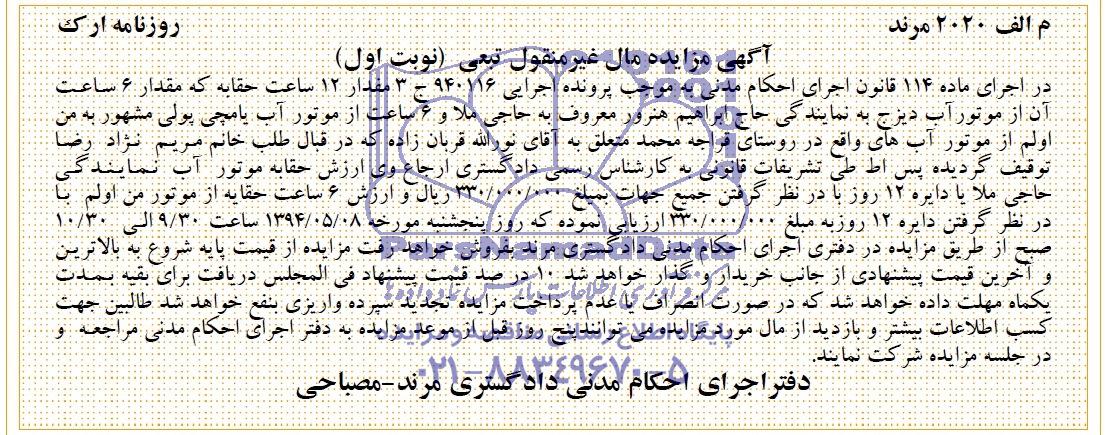 م الف ۲۰۲۰ مرند روزنامه ارک
آگهی مزایده مال غیرمنقول تبعی (نوبت اول)
در اجرای ماده ۱۱۴ قانون اجرای احکام مدنی به موجب پرونده اجرایی ۹۴۰۱۱۶ ج ۳ مقدار ۱۲ ساعت حقابه که مقدار ۶ ساعت
آن از موتورآب دیزج به نمایندگی حاج ابراهیم هنرور معروف به حاجی ملا و ۶ ساعت از موتور آب یامچی پولی مشهور به من
اولم از موتور آب های واقع در روستای قراجه محمد متعلق به آقای نورالله قربان زاده که در قبال طلب خانم مریم نژاد رضا
توقیف گردیده پس اط طی تشریفات قانونی به کارشناس رسمی دادگستری ارجاع وی ارزش حقابه موتور آب نمایندگی
حاجی ملا یا دایره ۱۲ روز با در نظر گرفتن جمیع جهات بمبلغ ۳۳۰/۰۰۰/۰۰۰ ریال و ارزش ۶ ساعت حقابه از موتور من اولم با
در نظر گرفتن دایره ۱۲ روزبه مبلغ ۳۳۰/۰۰۰/۰۰۰ ارزیابی نموده که روز پنجشنبه مورخه ۱۳۹۴/۰۵/۰۸ ساعت ۹/۳۰ الی ۱۰/۳۰
صبح از طریق مزایده در دفتری اجرای احکام مدنی دادگستری مرند بفروش خواهد رفت مزایده از قیمت پایه شروع به بالاترین
و آخرین قیمت پیشنهادی از جانب خریدار و گذار خواهد شد ۱۰ در صد قیمت پیشنهاد فی المجلس دریافت برای بقیه بمدت
یکماه مهلت داده خواهد شد که در صورت انصراف یا عدم پرداخت مزایده تجدید سپرده واریزی بنفع خواهد شد طالبین جهت
کسب اطلاعات بیشتر و بازدید از مال مورد مزایده می توانند پنج روز قبل از موعد مزایده به دفتر اجرای احکام مدنی مراجعه و
در جلسه مزایده شرکت نمایند.
دفتر اجرای احکام مدنی دادگستری مرند-مصباحی
ParsNamadData
پایگاه اطلاع رسانی مناقصه و مزایده
۰۲۱-۸۸۳۴۹۶۷۰-۵